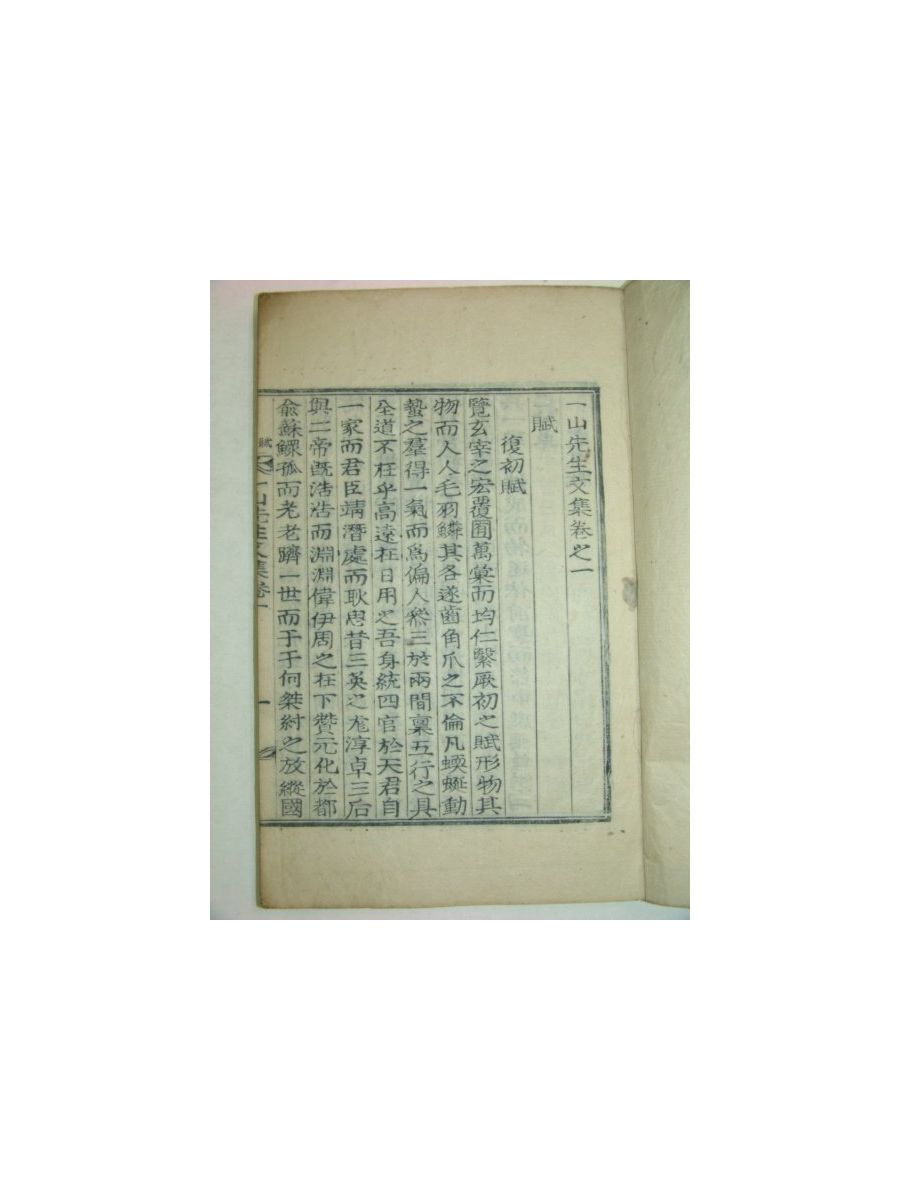 一山先生文集卷之一
賦
復初賦
覽玄宰之宏覆囿萬彙而均仁繄厥初之賦形物其
物而人人毛羽鱗其各遂齒角爪之不倫凡蝡蜒動
蟄之羣得一氣而爲偏人叅三於兩間稟五行之具
全道不在乎高遠在日用之吾身統四官於天君自
一家而君臣靖潛處而耿思昔三英之尨淳卓三后
與二帝旣浩浩而淵淵偉伊周之在下贊元化於都
兪蘇鰥孤而老老躋一世而于于何桀紂之放縱國
賦 一山先生文集卷一 一